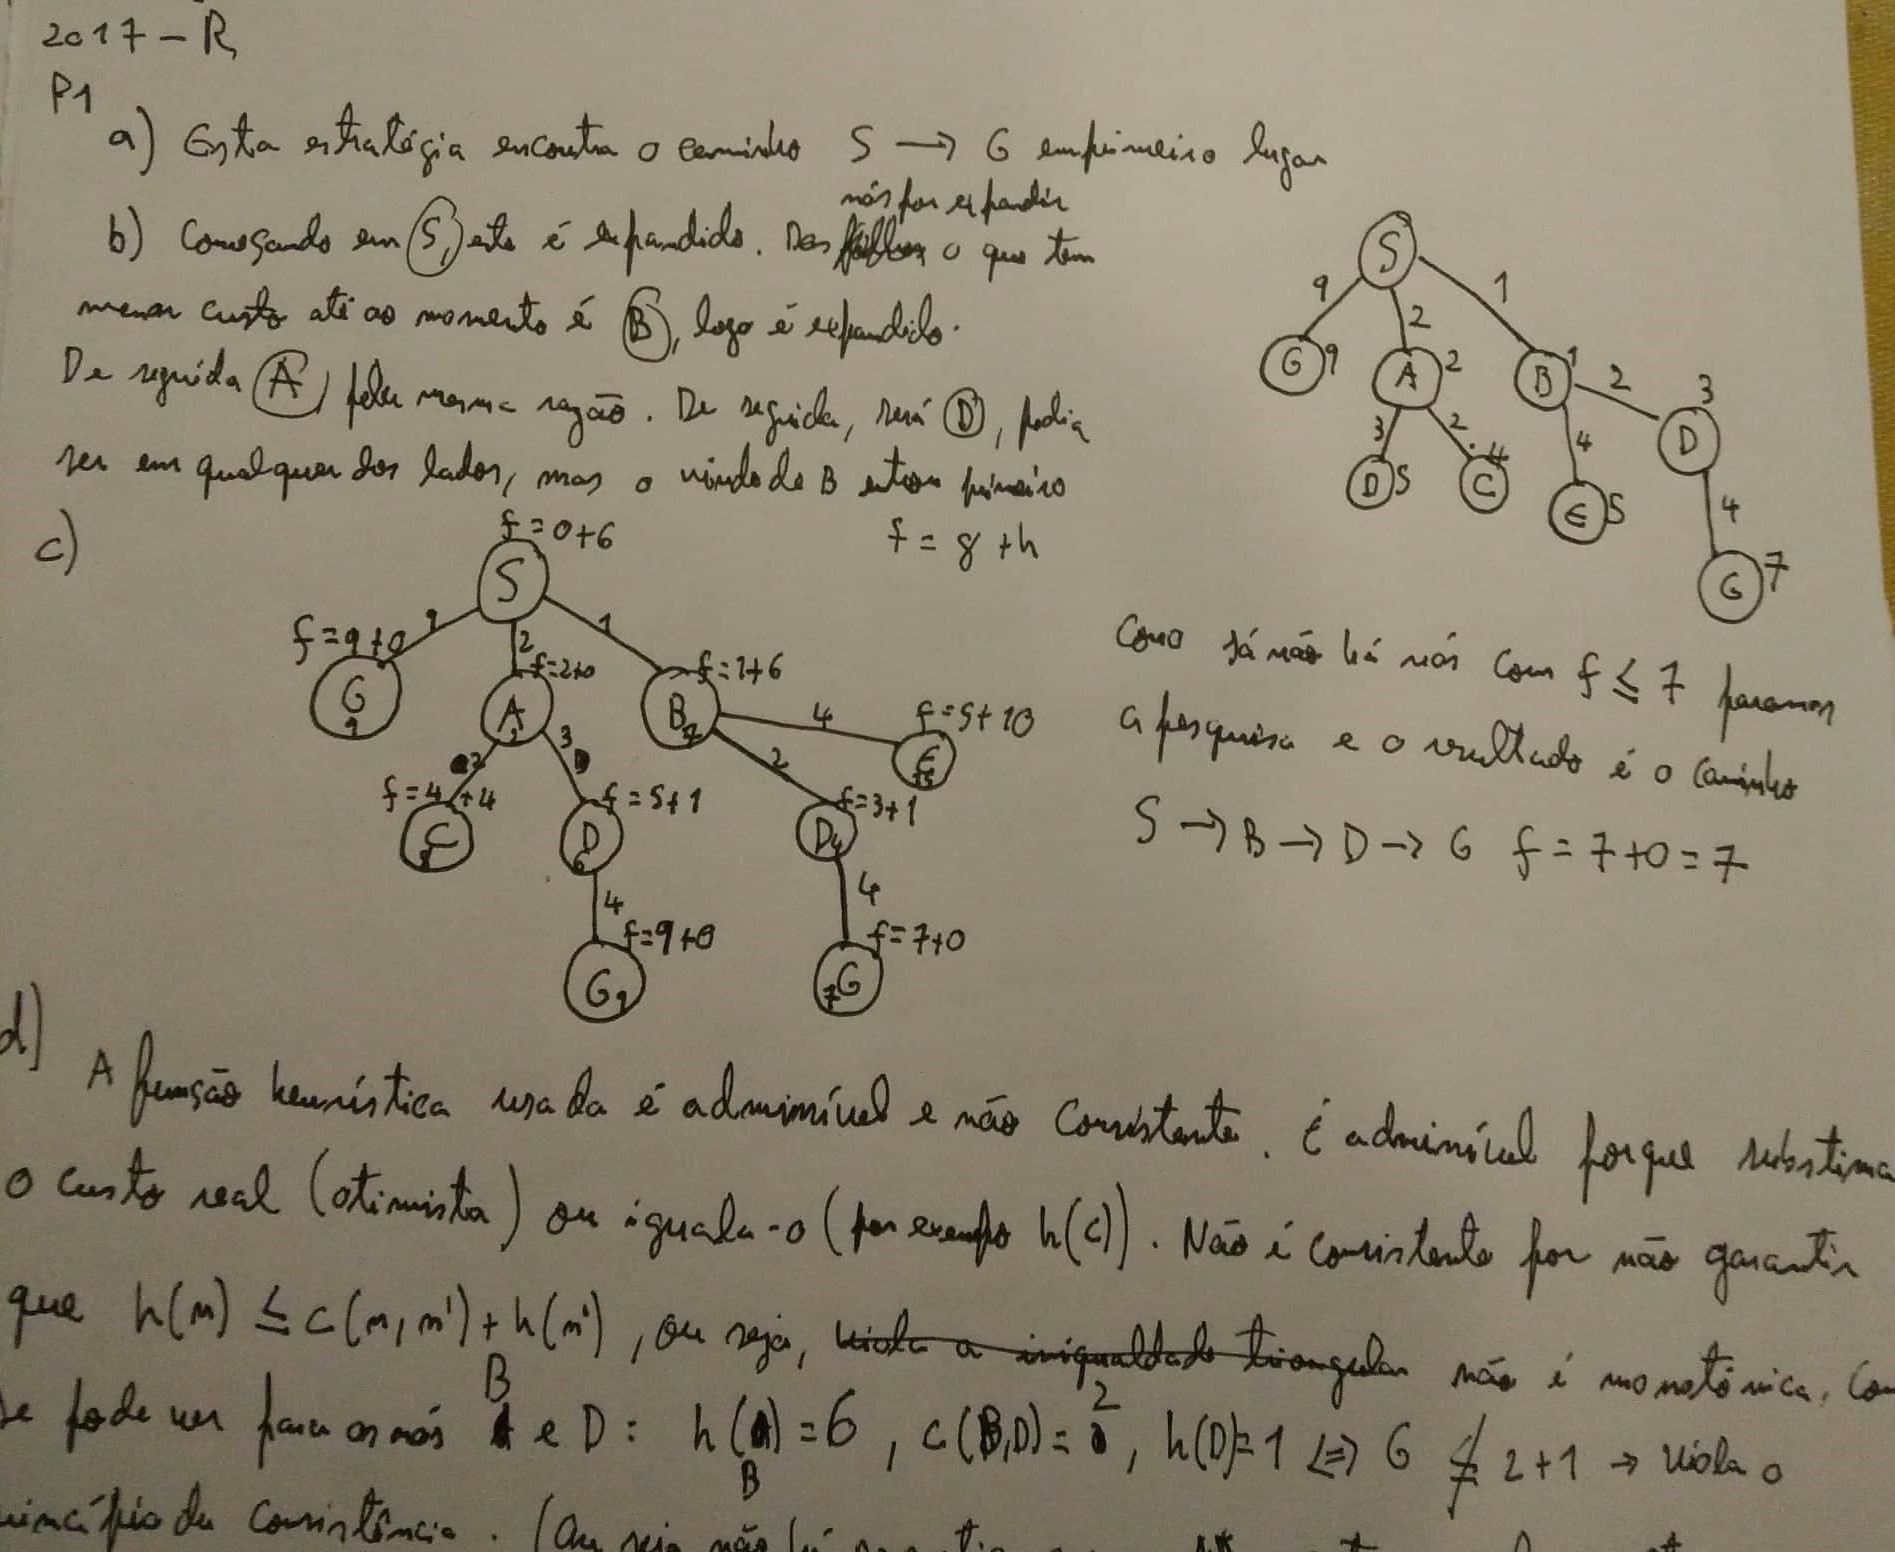 2017 - R
P1
a) Esta estratégia encontra o caminho S → G em primeiro lugar
nós por expandir
b) Começando em S, este é expandido. Dos filhos o que tem
menor custo até ao momento é B, logo é expandido.
De seguida A, pela mesma razão. De seguida, será D, podia
ser em qualquer dos lados, mas o vindo de B entrou primeiro
S
9 2 1
G 9 A 2 B 1 2 3
3 2 4 D
D 5 C 4 E 5 4
G 7
c) f = g + h
f = 0+6
S
9 2 1
f = 9+0 f=2+0 f=1+6
G 9 A 2 B 7 4 f=5+10
2 3 2 E 15
f=4+4 f=5+1 f=3+1
C 8 D 6 D 4
4 4
f=9+0 f=7+0
G 9 7 G
Como já não há nós com f ≤ 7 paramos
a pesquisa e o resultado é o caminho
S → B → D → G f = 7+0 = 7
d)
A função heurística usada é admissível e não consistente. É admissível porque substima
o custo real (otimista) ou iguala-o (por exemplo h(C)). Não é consistente por não garantir
que h(n) ≤ c(n, n') + h(n'), ou seja, viola a iniqualdade triangular não é monotónica, Com
B 2
se pode ver para os nós e D : h( ) = 6 , c(B,D) = , h(D)=1 ⟺ 6 ≰ 2+1 → viola o
B
princípio da consistência . (Ou seja não há